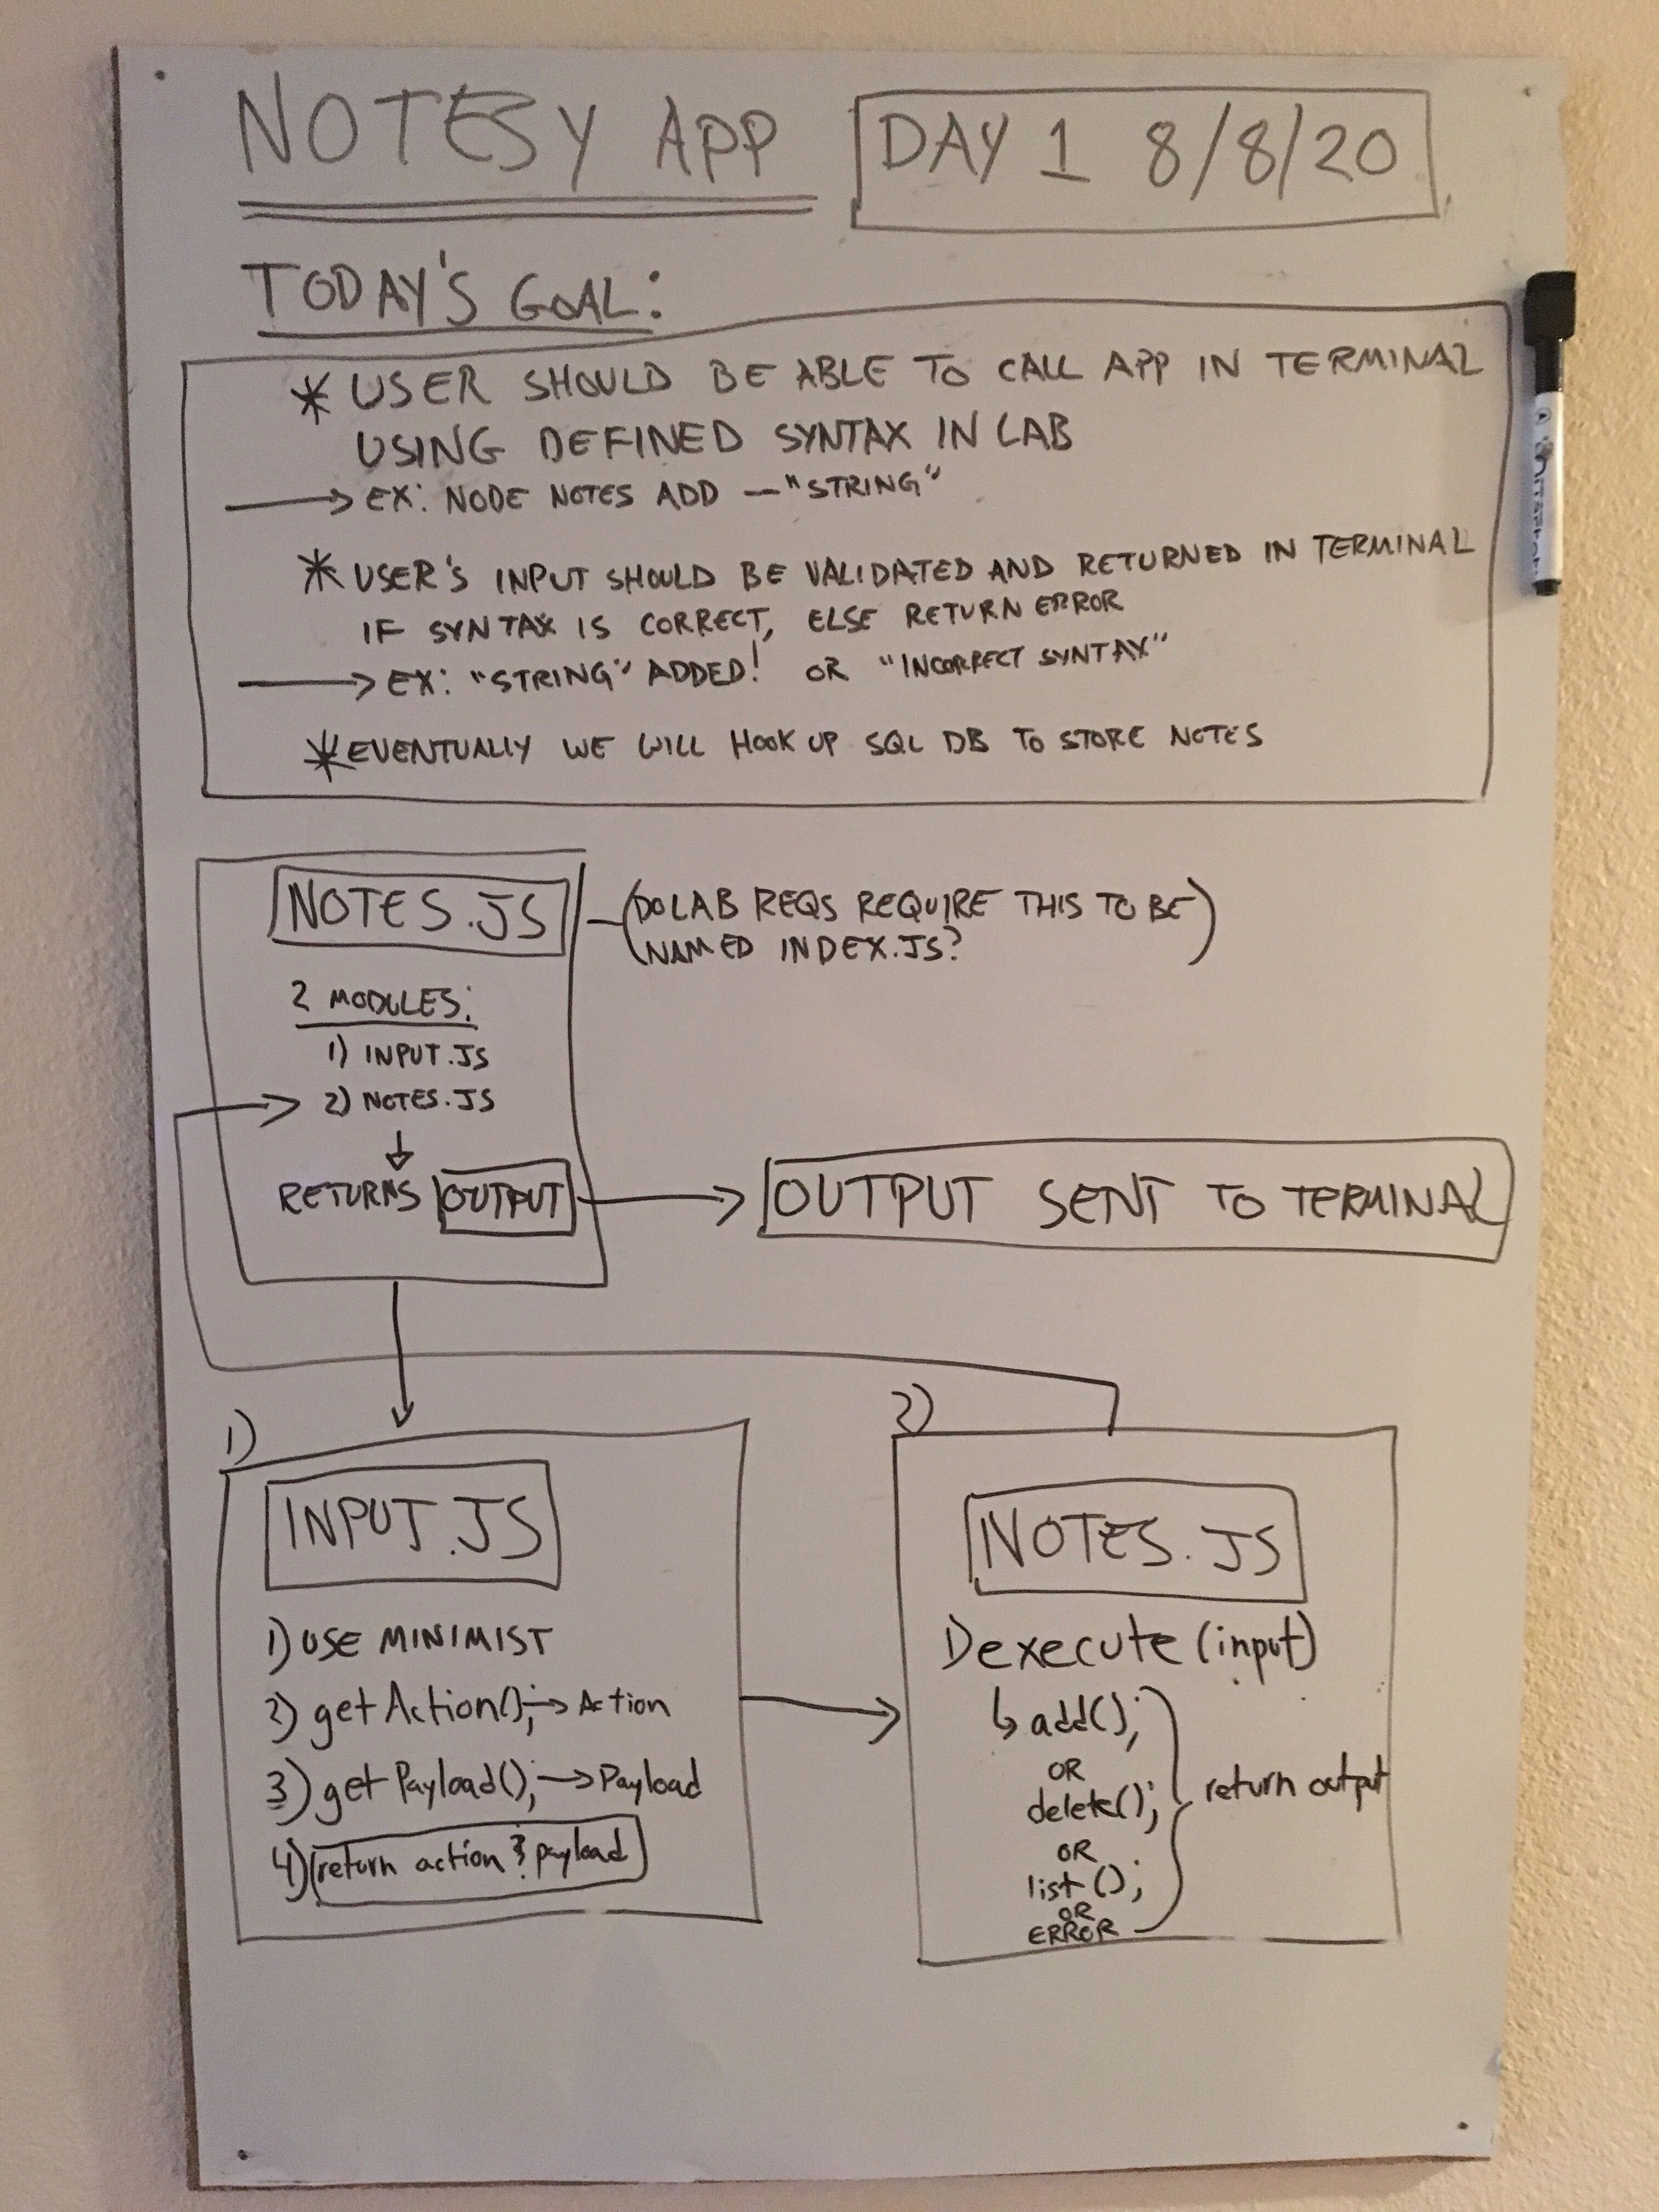 NOTESY APP
DAY 1 8/8/20
TODAY'S GOAL:
* USER SHOULD BE ABLE TO CALL APP IN TERMINAL
USING DEFINED SYNTAX IN LAB
→ EX: NODE NOTES ADD —"STRING"
* USER'S INPUT SHOULD BE VALIDATED AND RETURNED IN TERMINAL
IF SYNTAX IS CORRECT, ELSE RETURN ERROR
→ EX: "STRING" ADDED! OR "INCORRECT SYNTAX"
* EVENTUALLY WE WILL HOOK UP SQL DB TO STORE NOTES
NOTES.JS
(DO LAB REQS REQUIRE THIS TO BE
NAMED INDEX.JS?)
2 MODULES:
1) INPUT.JS
2) NOTES.JS
↓
RETURNS OUTPUT → OUTPUT SENT TO TERMINAL
1)
INPUT.JS
1) USE MINIMIST
2) getAction(); → Action
3) getPayload(); → Payload
4) return action & payload
2)
NOTES.JS
1) execute(input)
↳ add();
OR
delete();
OR
list();
OR
ERROR
return output